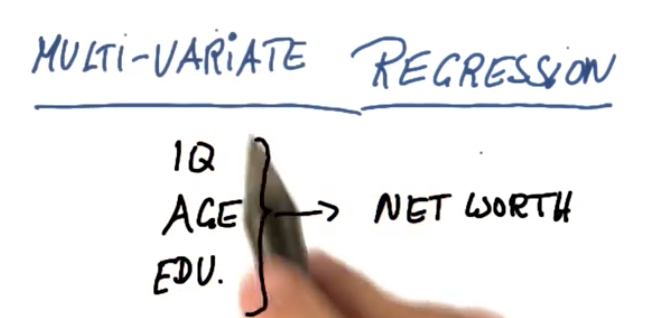 MULTI-VARIATE REGRESSION
IQ
AGE → NET WORTH
EDU.